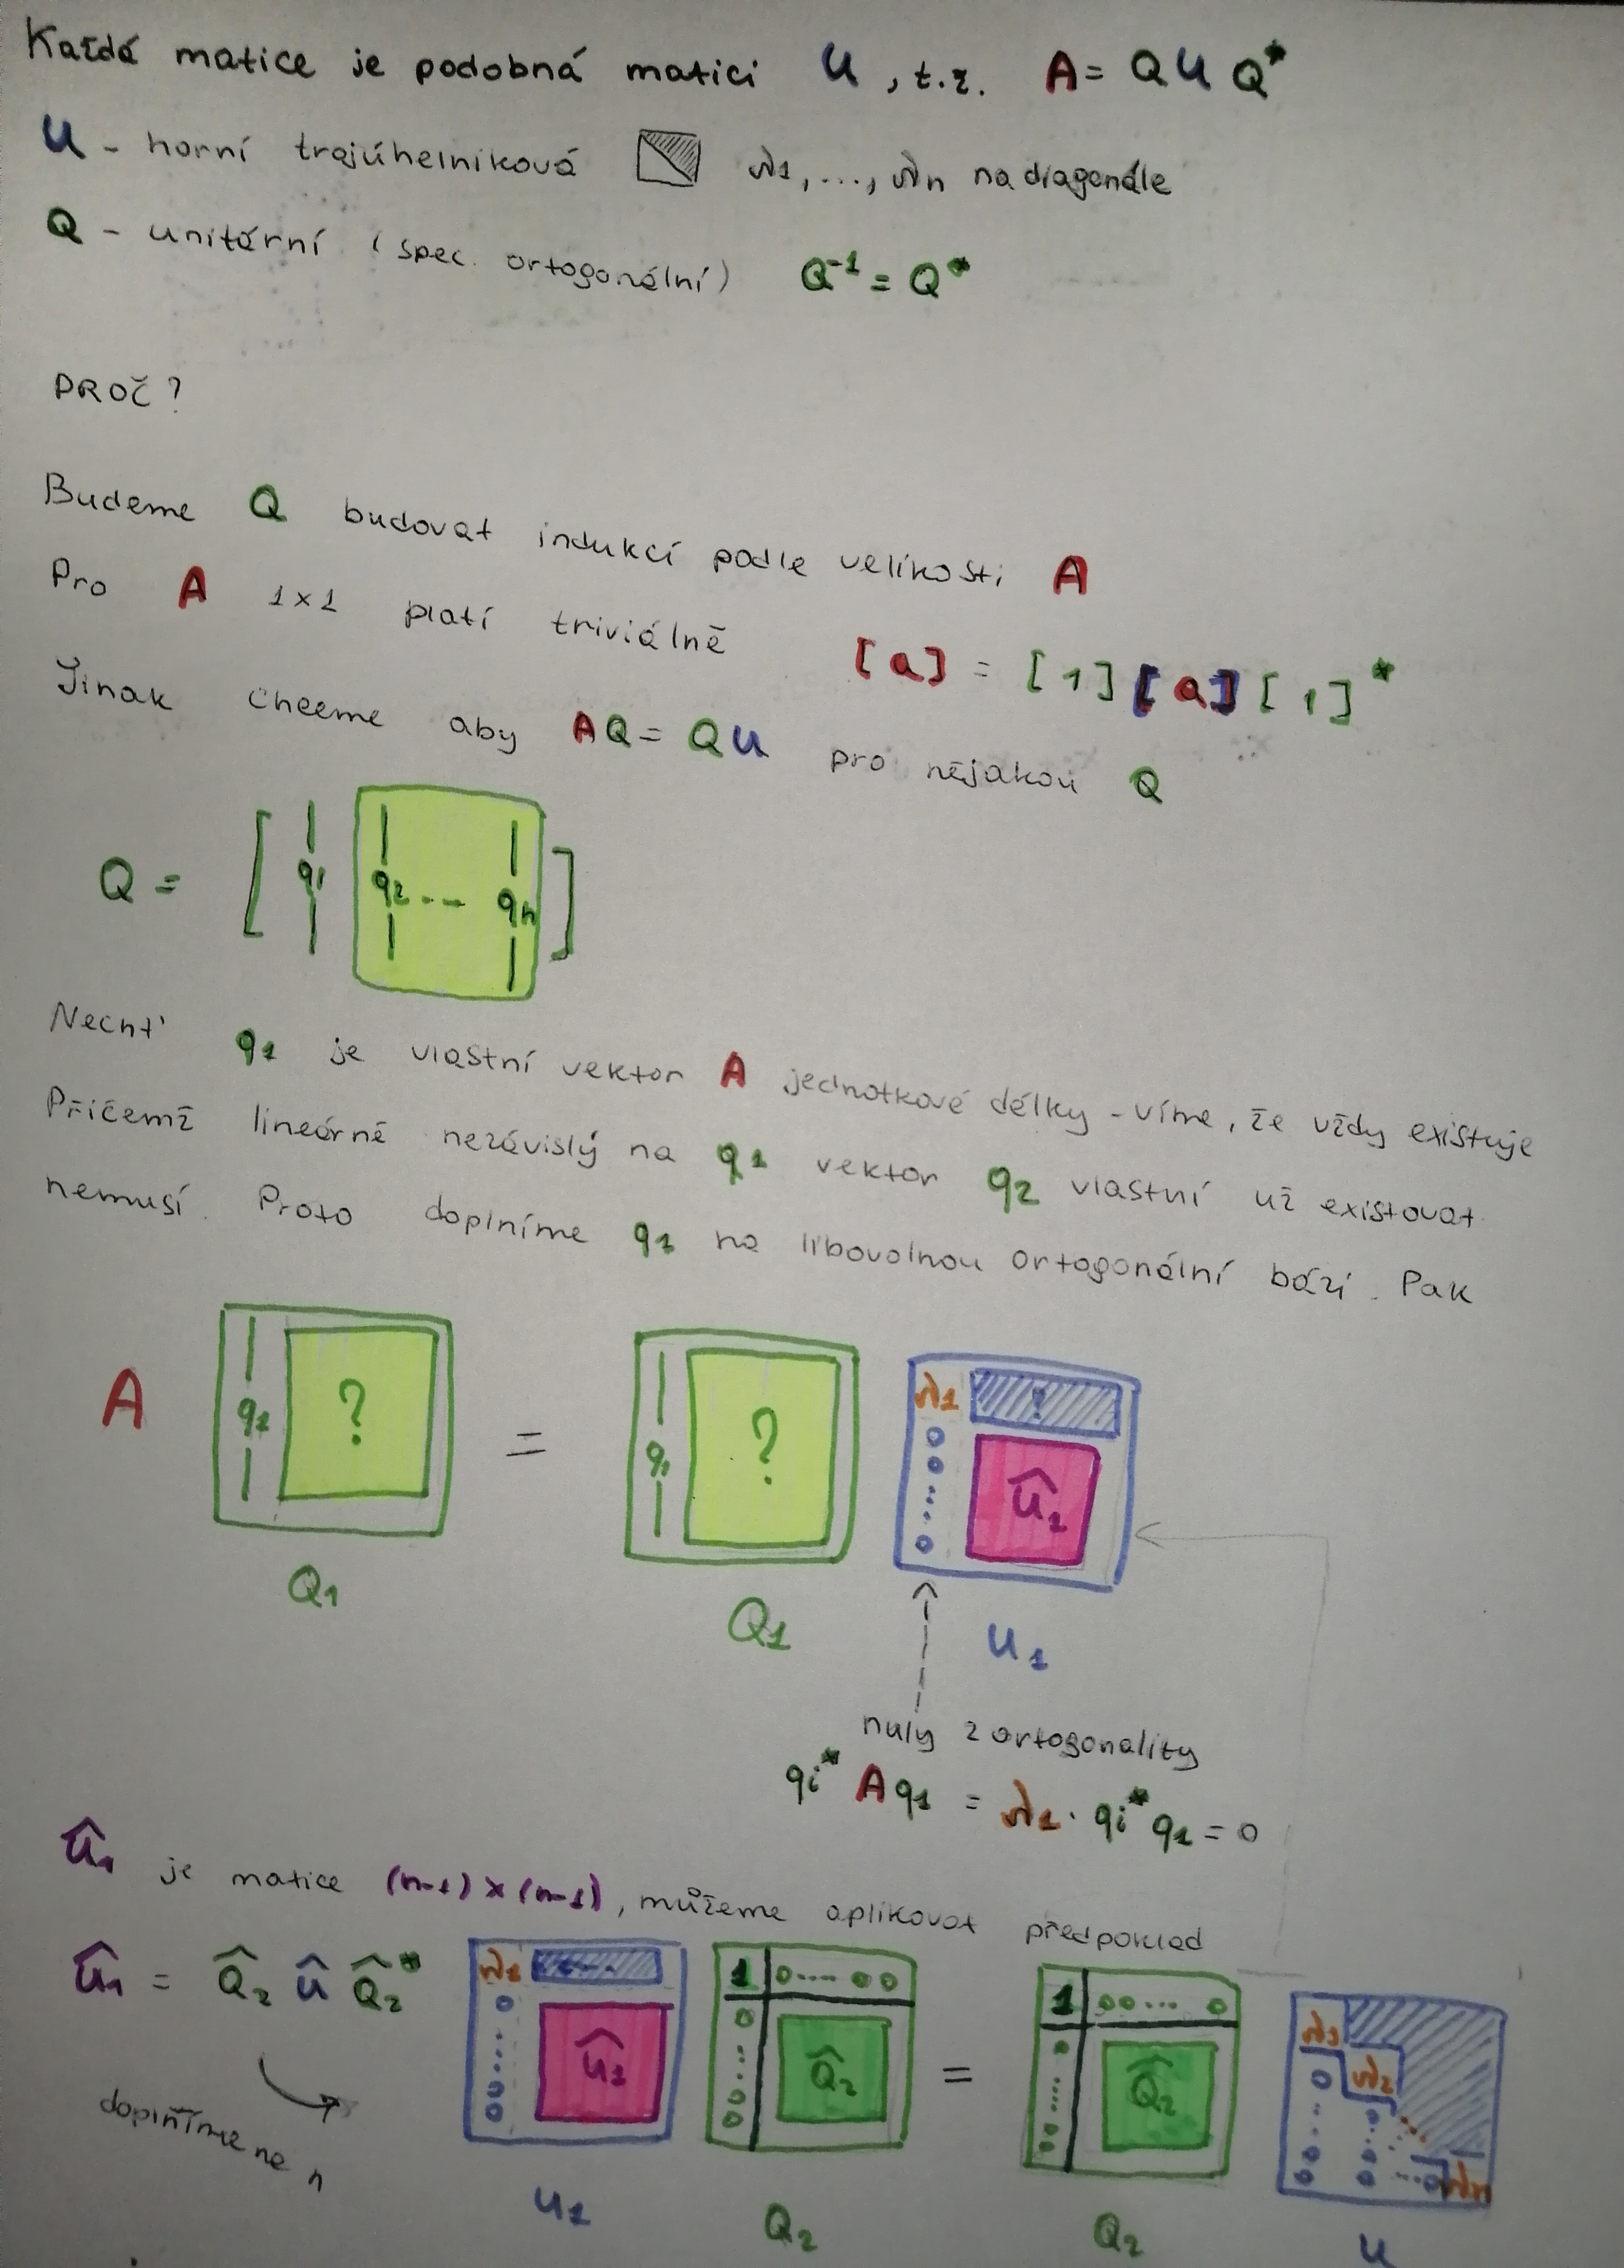 Každá matice je podobná matici U, t.ž. A = Q U Q*
U - horní trojúhelníková λ1, ..., λn na diagonále
Q - unitární (spec. ortogonální) Q⁻¹ = Q*
PROČ?
Budeme Q budovat indukcí podle velikosti A
Pro A 1×1 platí triviálně [a] = [1][a][1]*
Jinak chceme aby AQ = QU pro nějakou Q
Q = [ q1 q2 ... qn ]
Nechť q1 je vlastní vektor A jednotkové délky - víme, že vždy existuje
Přičemž lineárně nezávislý na q1 vektor q2 vlastní už existovat
nemusí. Proto doplníme q1 na libovolnou ortogonální bázi. Pak
A q1 ? = q1 ? λ1 0 0 ... 0 Û1
Q1 Q1 U1
nuly z ortogonality
qi* A q1 = λ1 · qi* q1 = 0
Û1 je matice (n-1) × (n-1), můžeme aplikovat předpoklad
Û1 = Q̂2 Û Q̂2*
λ1 0 ... 0 0 Û1 1 0 ... 0 0 0 ... 0 0 Q̂2 = 1 0 0 ... 0 0 ... 0 0 Q̂2 λ1 λ2 λn
doplníme na n
U1 Q2 Q2 U